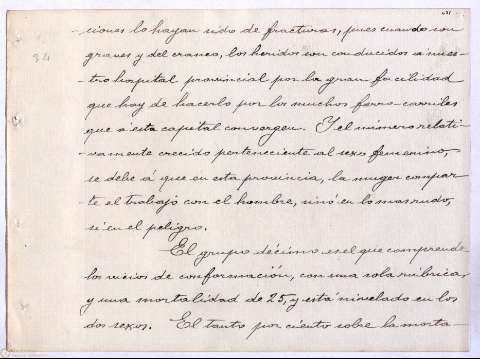 -ciones lo hayan sido de fracturas, pues cuando son
graves y del craneo, los heridos son conducidos á nues-
-tro hospital provincial por la gran facilidad
que hay de hacerlo por los muchos ferro-carriles
que á esta capital convergen. Y el número relati-
-vamente crecido perteneciente al sexo femenino,
se debe á que en esta provincia, la muger compar-
te el trabajo con el hombre, sinó en lo mas rudo,
si en el peligro.
El grupo décimo es el que comprende
los vicios de conformación, con una sola rúbrica,
y una mortalidad de 25, y está nivelado en los
dos sexos. El tanto por ciento sobre la morta-